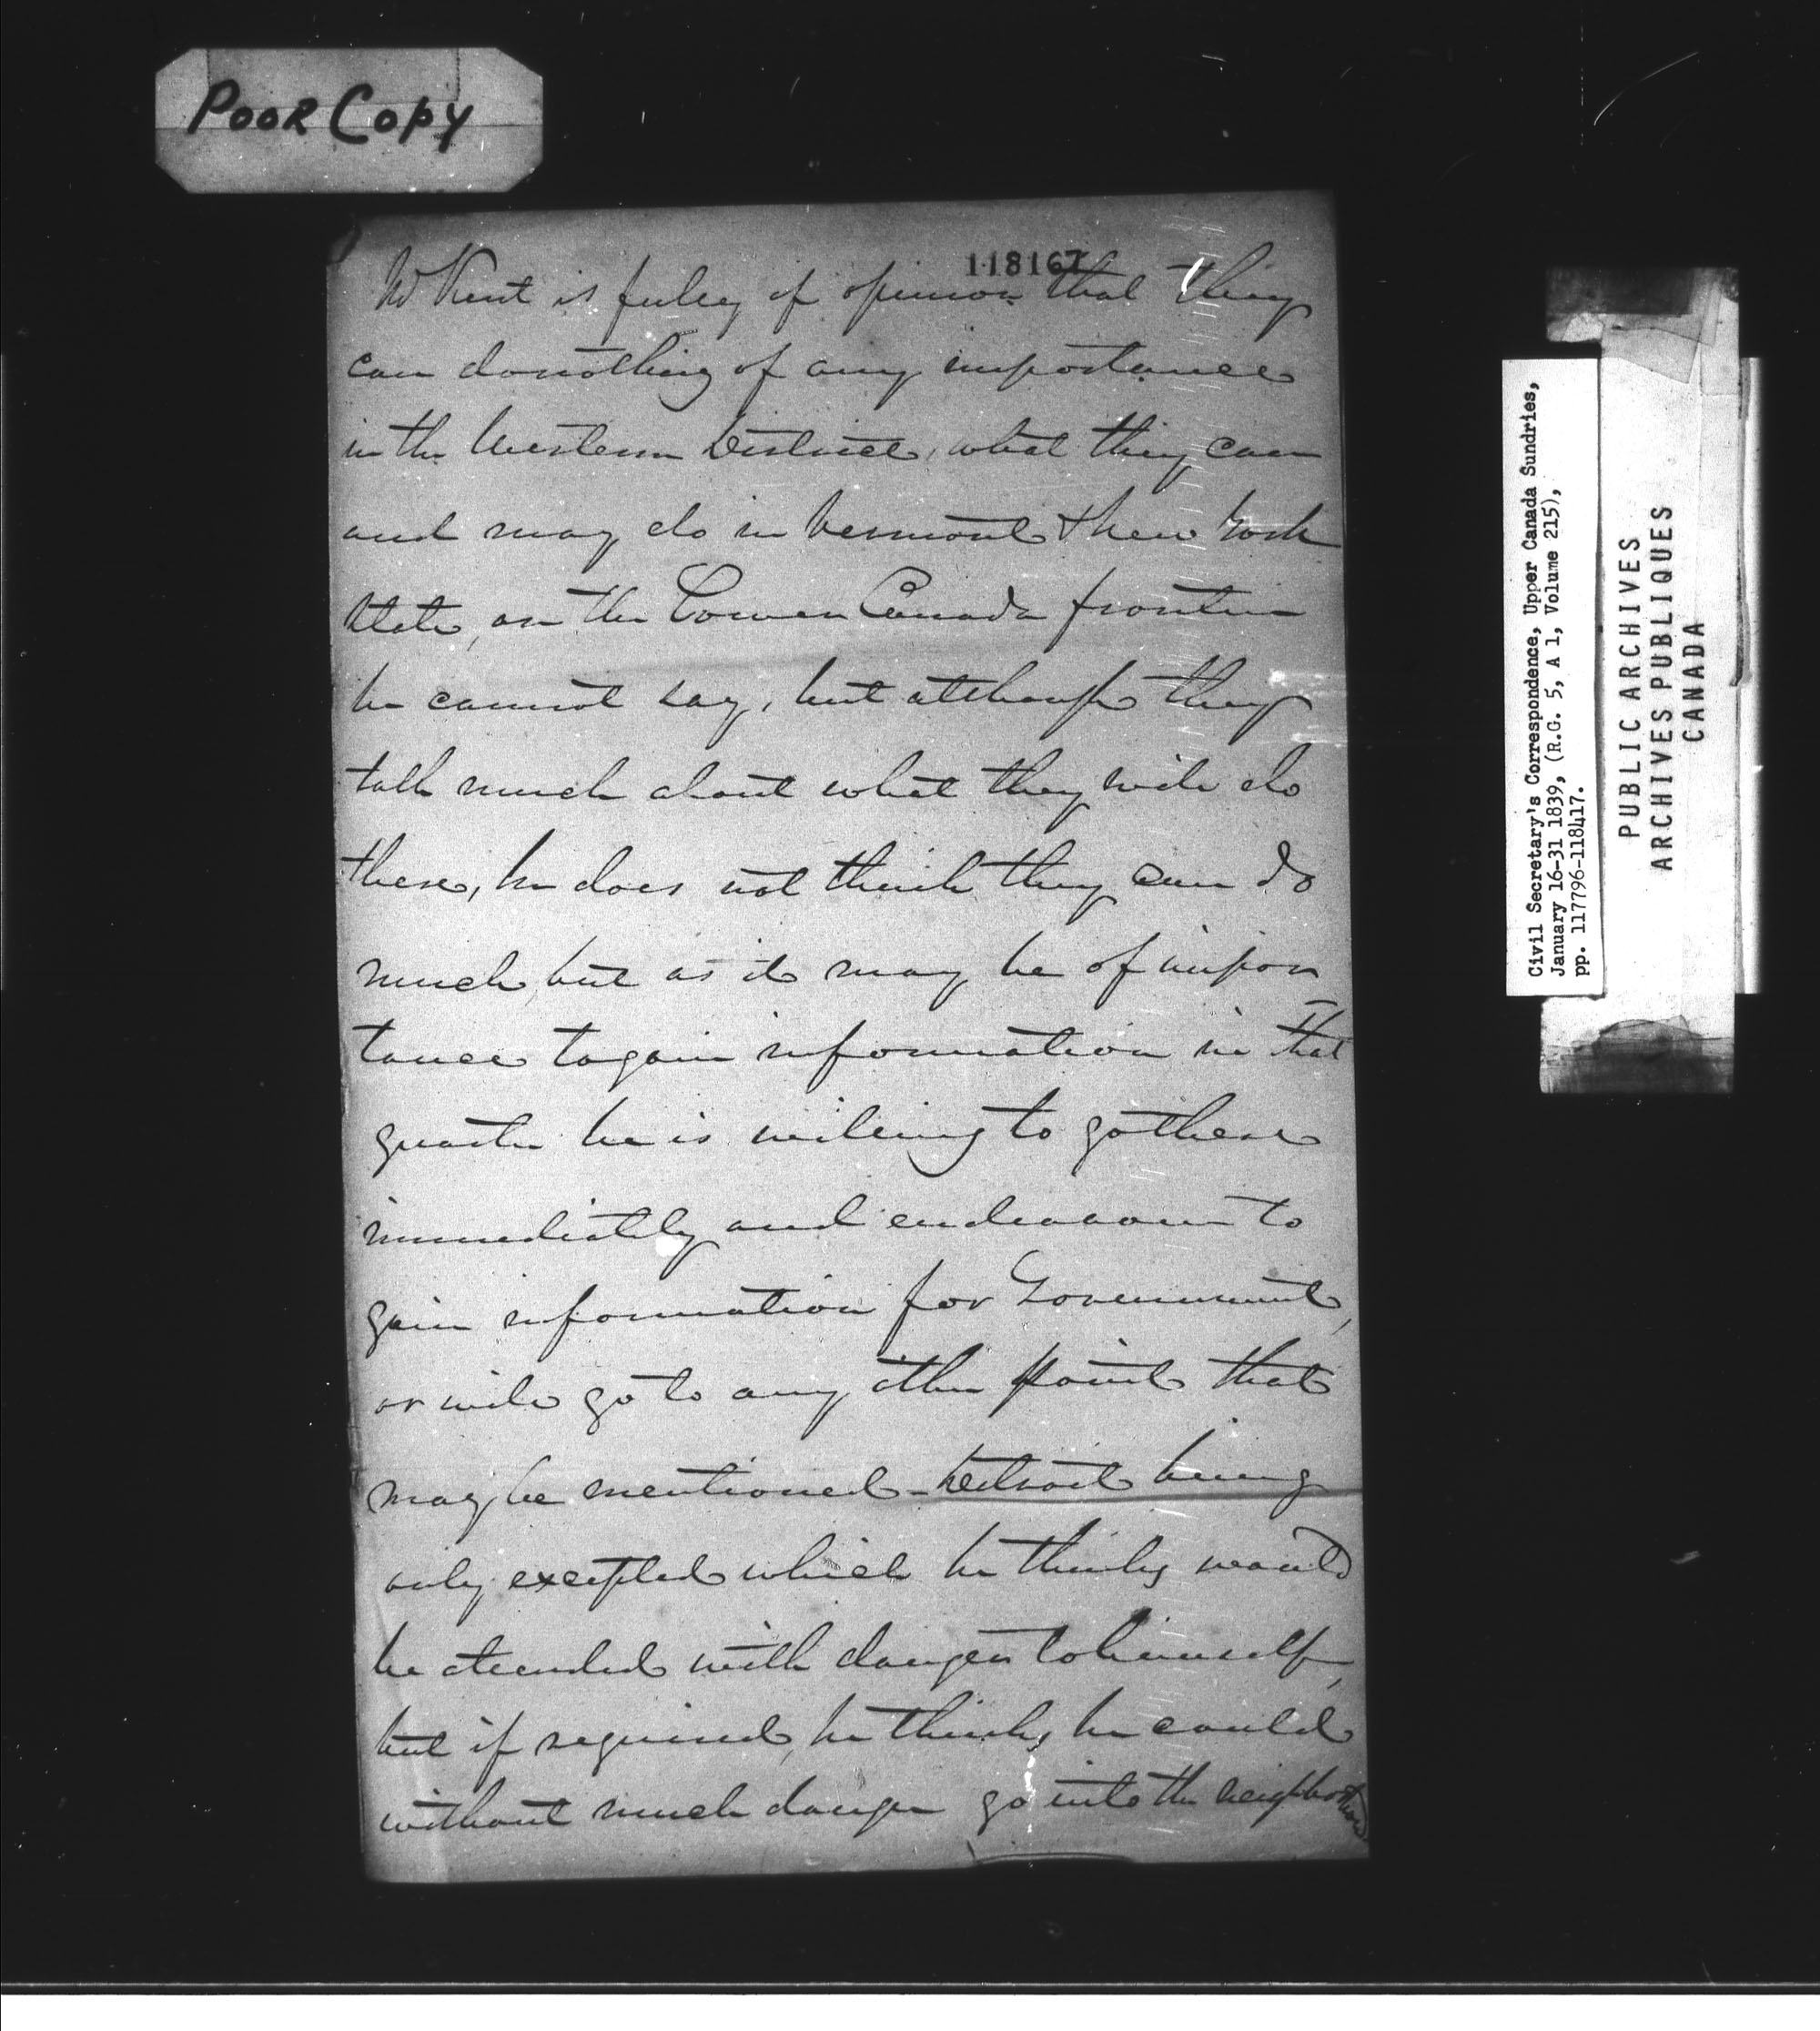 Poor Copy
118167
Mr Kent is fully of opinion that they
can do nothing of any importance
in the Western District, what they can
and may do in Vermont & New York
State, on the Lower Canada frontier
he cannot say, but although they
talk much about what they will do
there, he does not think they can do
much, but as it may be of impor
tance to gain information in that
quarter he is willing to go there
immediately and endeavour to
gain information for Government,
or will go to any other point that
may be mentioned - Detroit being
only excepted which he thinks would
be attended with danger to himself,
but if required, he thinks he could
without much danger go into the neighborhood
Civil Secretary's Correspondence, Upper Canada Sundries,
January 16-31 1839, (R.G. 5, A 1, Volume 215),
pp. 117796-118417.
PUBLIC ARCHIVES
ARCHIVES PUBLIQUES
CANADA